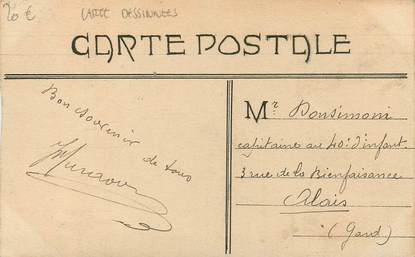 20 €
CARTE DESSINNEES
CARTE POSTALE
Bon souvenir
de tous
Mr Donsimoni
capitaine au 40e d'infant.
3 rue de la Bienfaisance
Alais
(Gard)